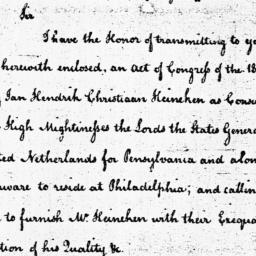 Sir
I have the Honor of transmitting to yo
herewith enclosed, an act of Congress of the 18
Jan Hendrik Christiaan Heineken as Consu
High Mightinesses the Lords the States Genera
ted Netherlands for Pensylvania and
ware to reside at Philadelphia; and callin
to furnish Mr. Heineken with their Exequa
tion of his Quality &c.